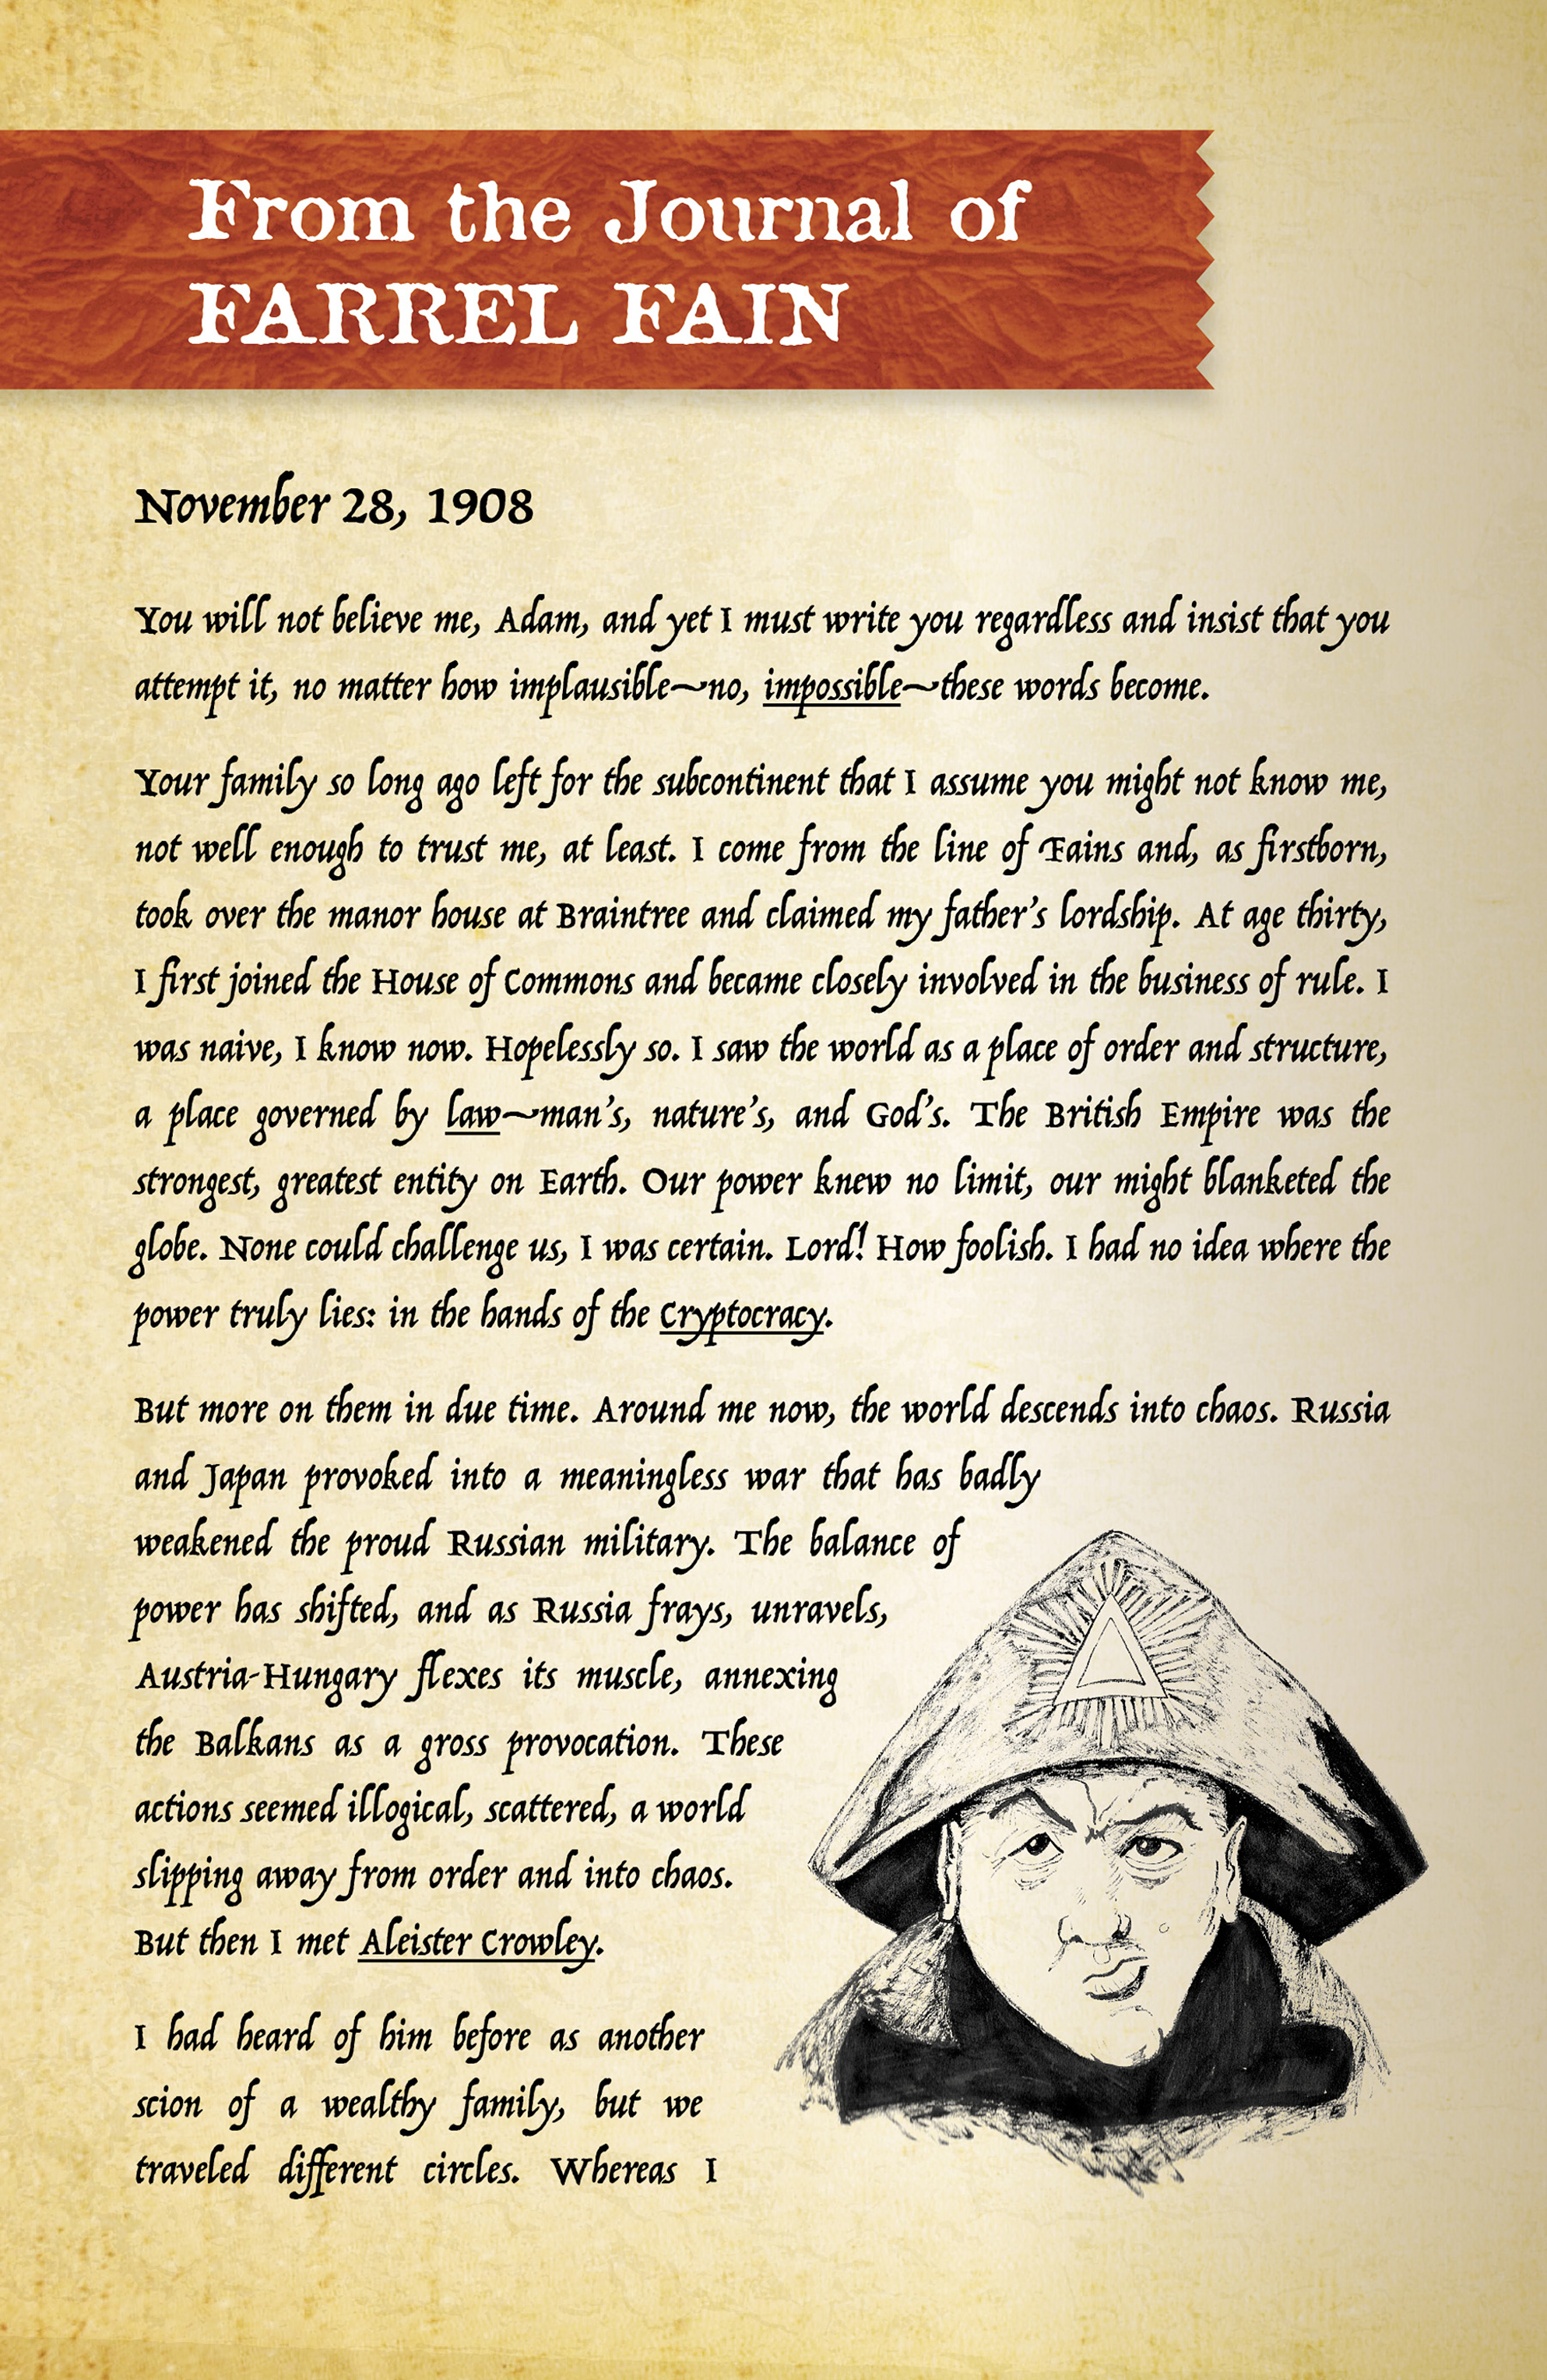 From the Journal of
FARREL FAIN
November 28, 1908
You will not believe me, Adam, and yet I must write you regardless and insist that you
attempt it, no matter how implausible—no, impossible—these words become.
Your family so long ago left for the subcontinent that I assume you might not know me,
not well enough to trust me, at least. I come from the line of Fains and, as firstborn,
took over the manor house at Braintree and claimed my father's lordship. At age thirty,
I first joined the House of Commons and became closely involved in the business of rule. I
was naive, I know now. Hopelessly so. I saw the world as a place of order and structure,
a place governed by law—man's, nature's, and God's. The British Empire was the
strongest, greatest entity on Earth. Our power knew no limit, our might blanketed the
globe. None could challenge us, I was certain. Lord! How foolish. I had no idea where the
power truly lies: in the hands of the Cryptocracy.
But more on them in due time. Around me now, the world descends into chaos. Russia
and Japan provoked into a meaningless war that has badly
weakened the proud Russian military. The balance of
power has shifted, and as Russia frays, unravels,
Austria-Hungary flexes its muscle, annexing
the Balkans as a gross provocation. These
actions seemed illogical, scattered, a world
slipping away from order and into chaos.
But then I met Aleister Crowley.
I had heard of him before as another
scion of a wealthy family, but we
traveled different circles. Whereas I